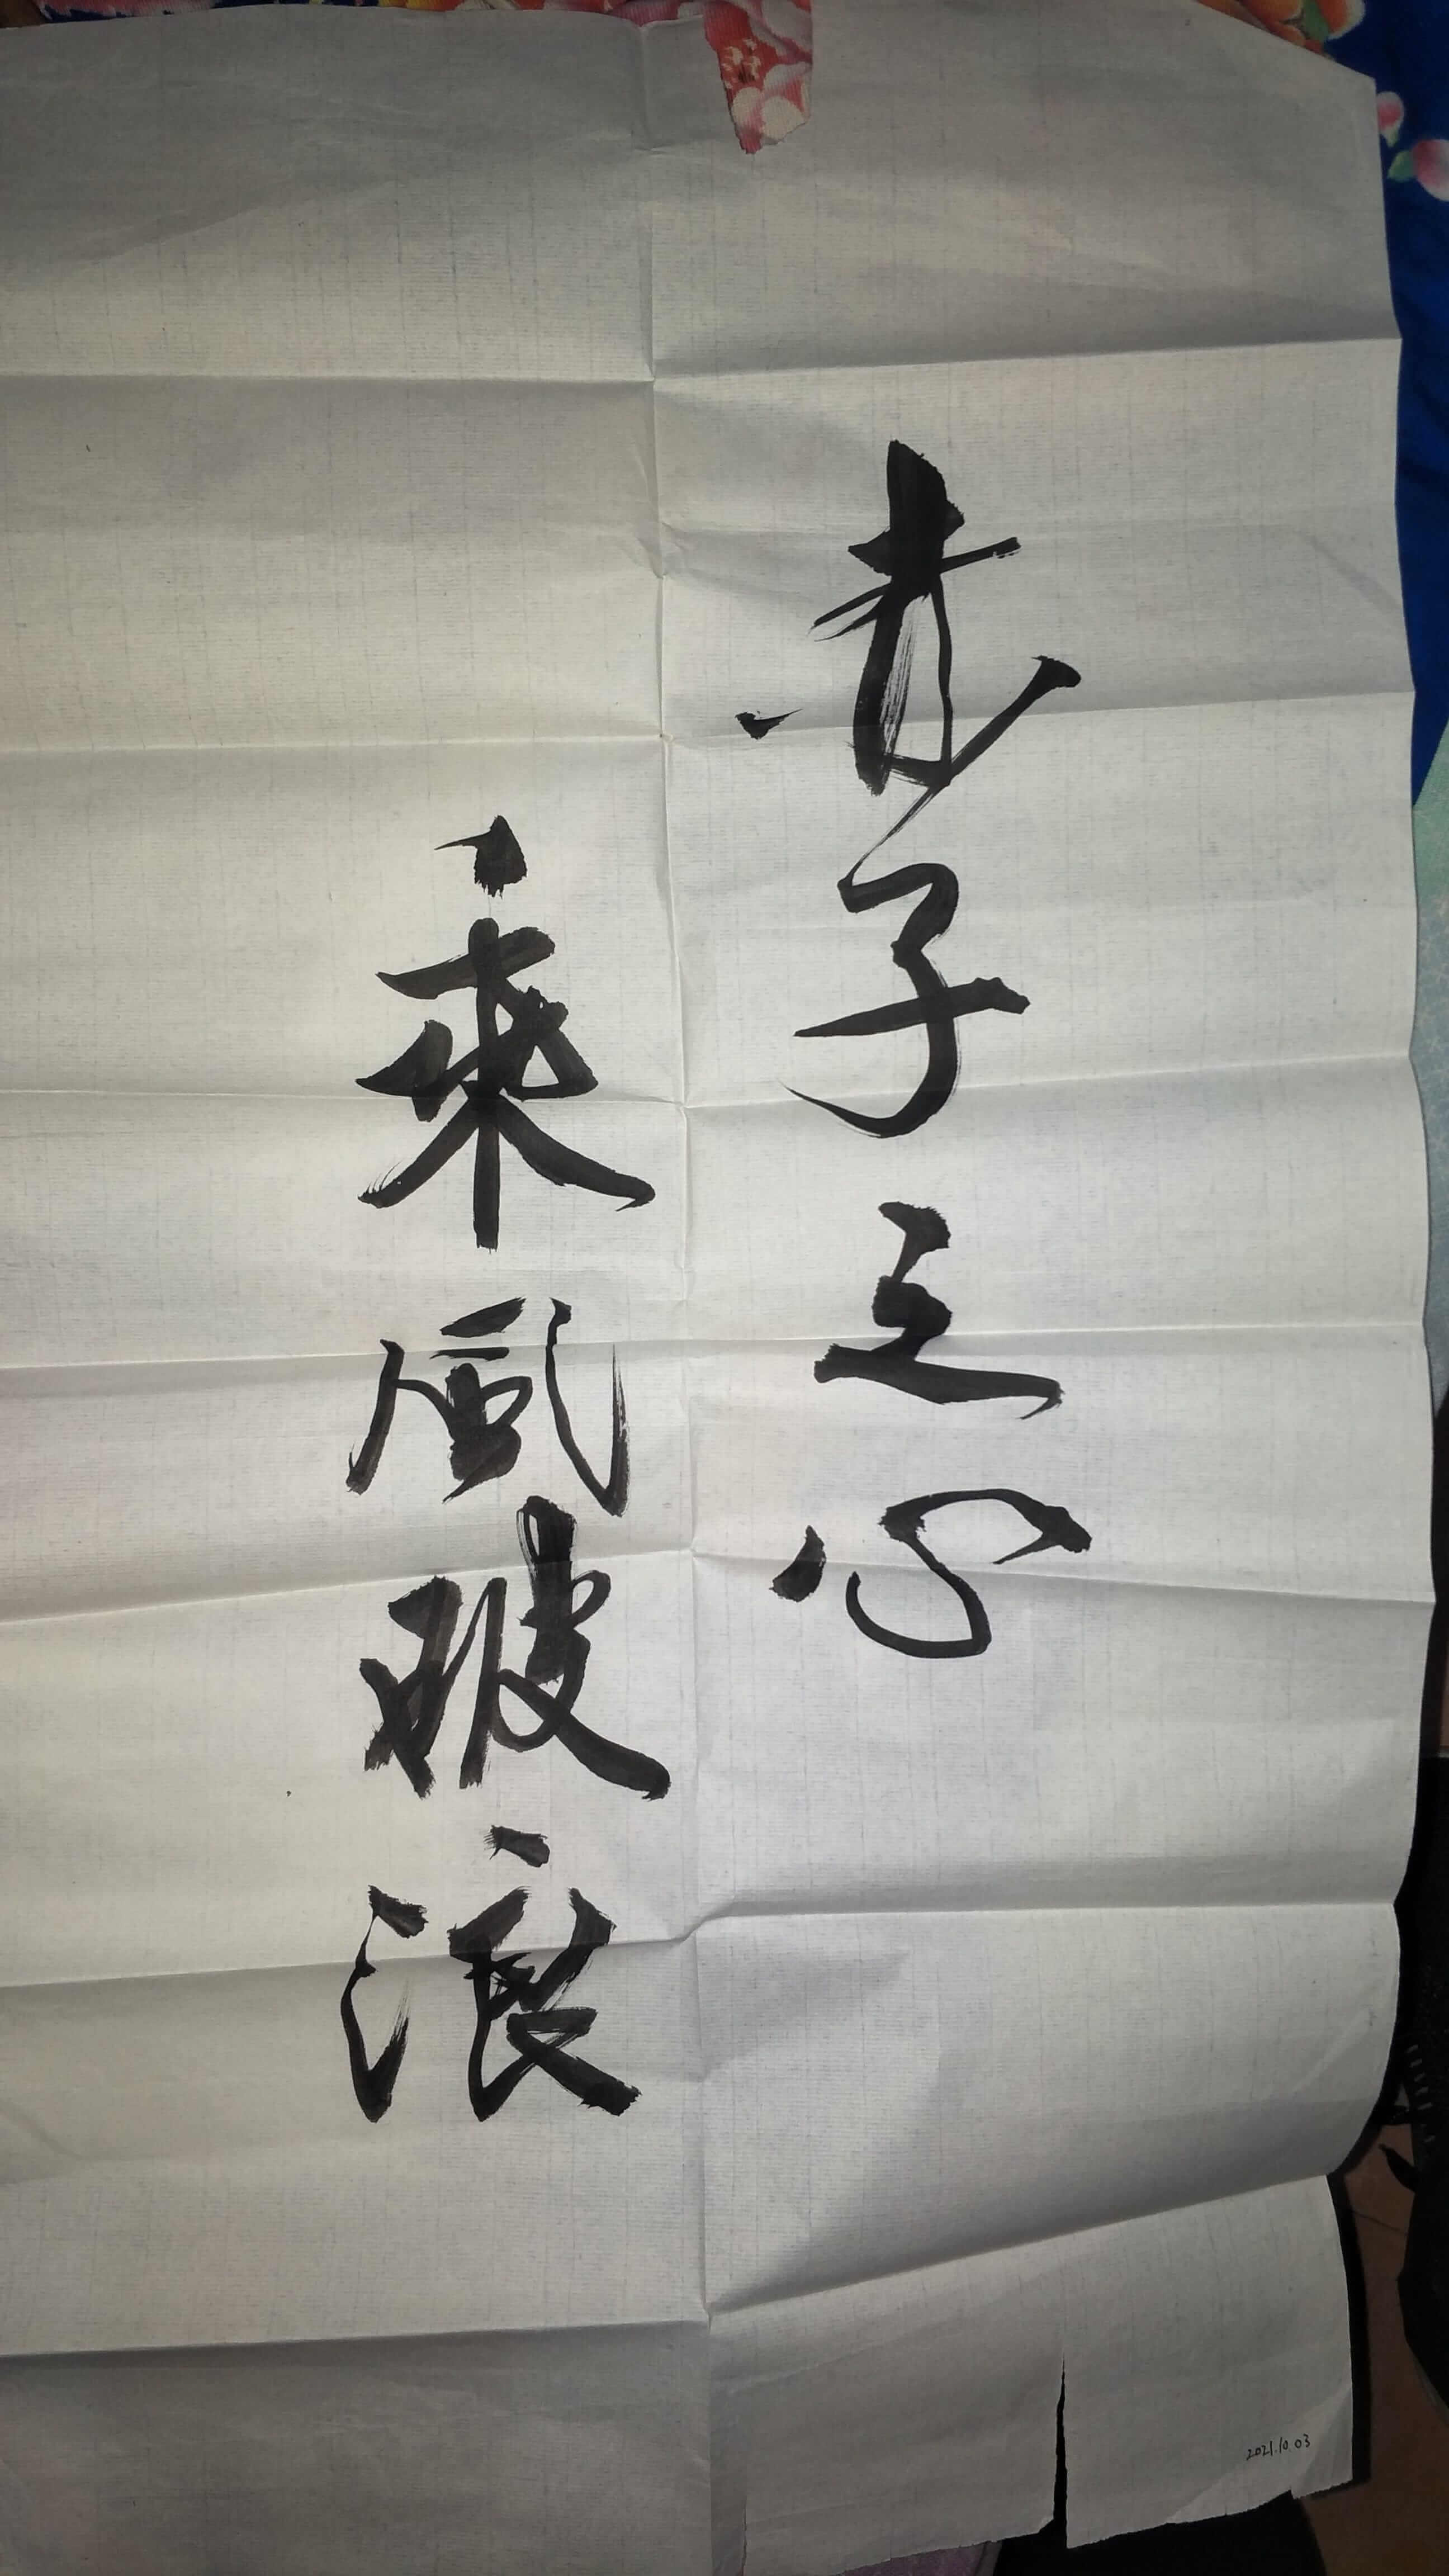 赤子之心
乘風破浪
2021.10.03